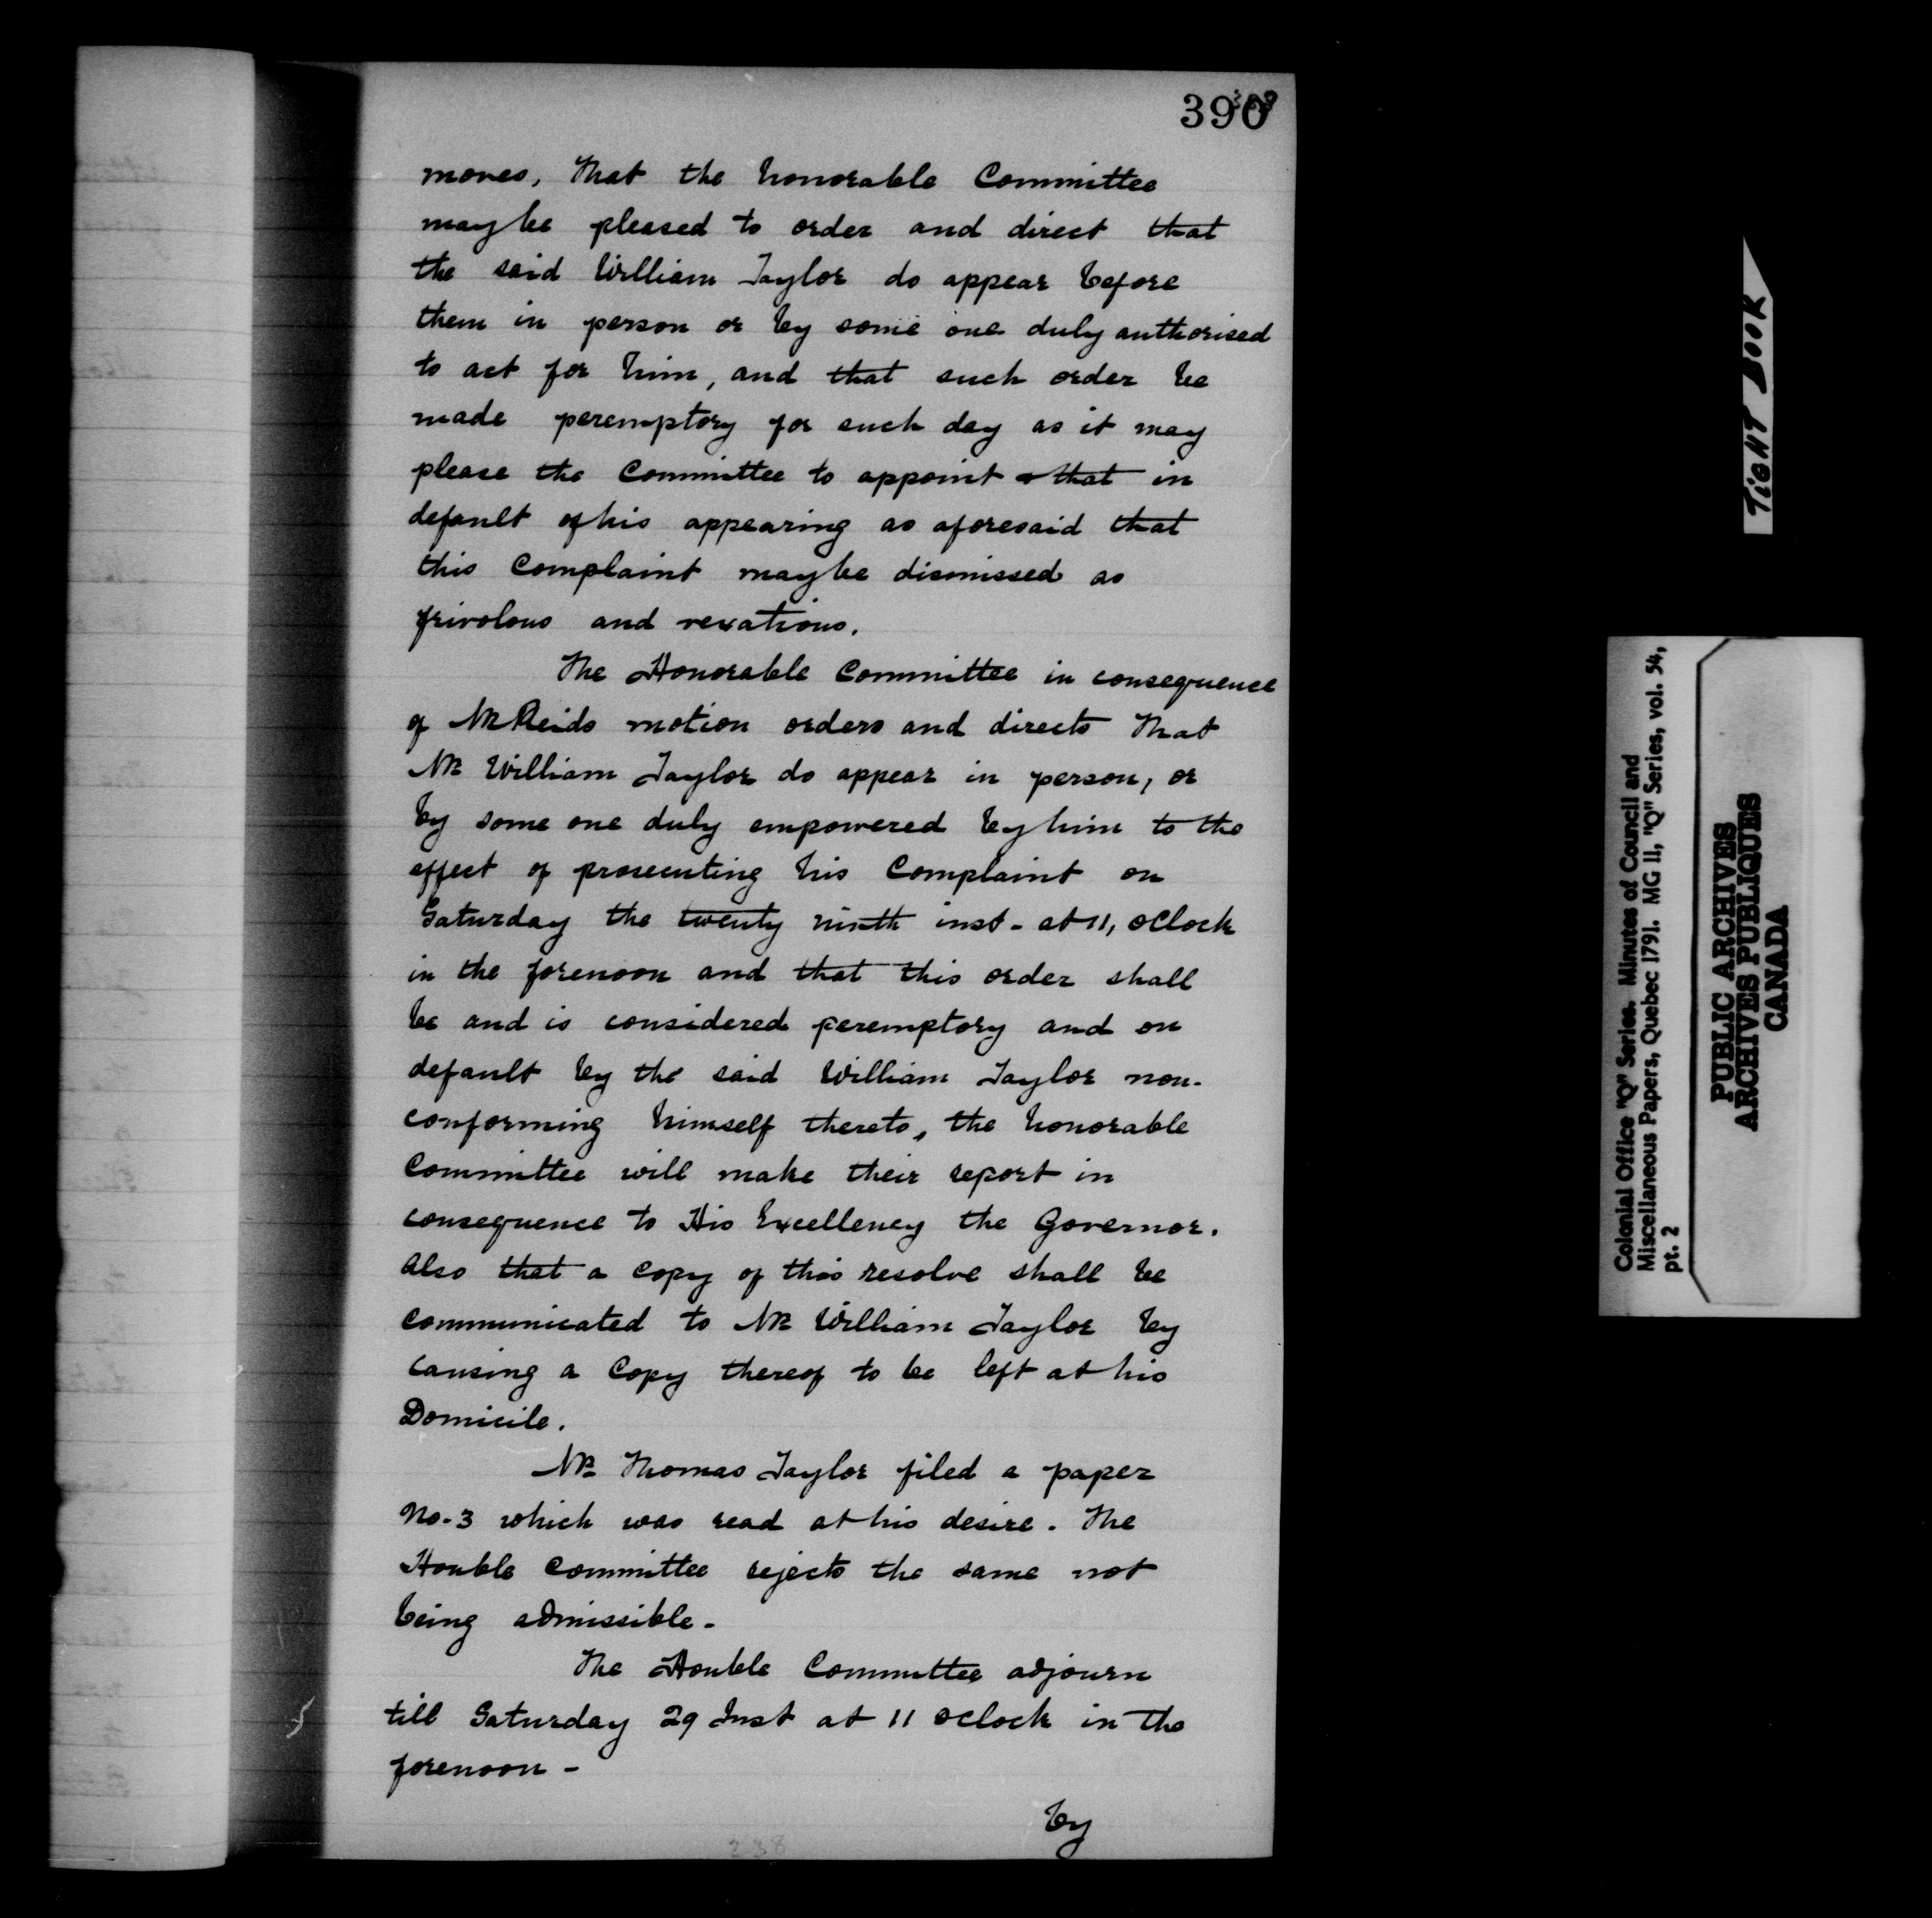 390
moves, That the honorable Committee
may be pleased to order and direct that
the said William Taylor do appear before
them in person or by some one duly authorised
to act for him, and that such order be
made peremptory for such day as it may
please the Committee to appoint & that in
default of his appearing as aforesaid that
this Complaint may be dismissed as
frivolous and vexatious.
The Honorable Committee in consequence
of Mr Reids motion orders and directs That
Mr William Taylor do appear in person, or
by some one duly empowered by him to the
effect of prosecuting his Complaint on
Saturday the twenty ninth inst - at 11, oClock
in the forenoon and that this order shall
be and is considered peremptory and on
default by the said William Taylor non-
conforming himself thereto, the honorable
Committee will make their report in
consequence to His Excellency the Governor.
Also that a copy of this resolve shall be
communicated to Mr William Taylor by
causing a Copy thereof to be left at his
Domicile.
Mr Thomas Taylor filed a paper
No. 3 which was read at his desire. The
Honble Committee rejects the same not
being admissible -
The Honble Committee adjourn
till Saturday 29 Inst at 11 oclock in the
forenoon -
by
238
TIGHT BOOK
Colonial Office "Q" Series. Minutes of Council and
Miscellaneous Papers, Quebec 1791. MG 11, "Q" Series, vol. 54,
pt. 2
PUBLIC ARCHIVES
ARCHIVES PUBLIQUES
CANADA